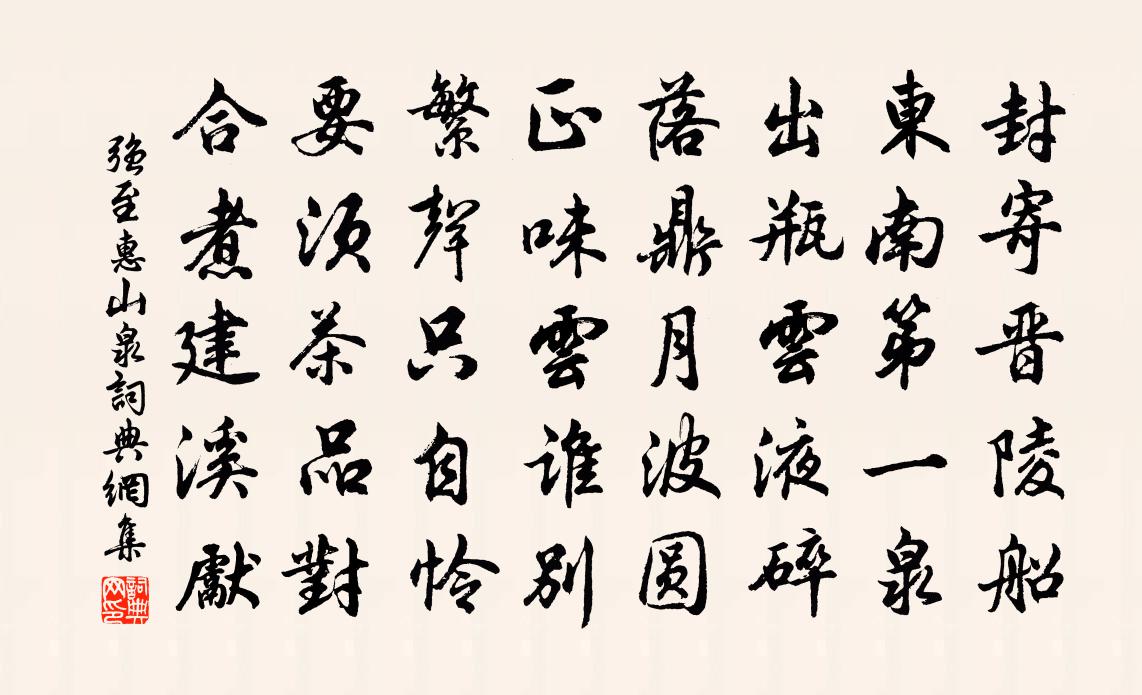 封寄晋陵船
東南第一泉
出瓶雲液碎
落鼎月波圆
正味雲誰別
繁聲只自怜
要須茶品對
合煮建溪獻
強至惠山泉詞典網集
詞典網印